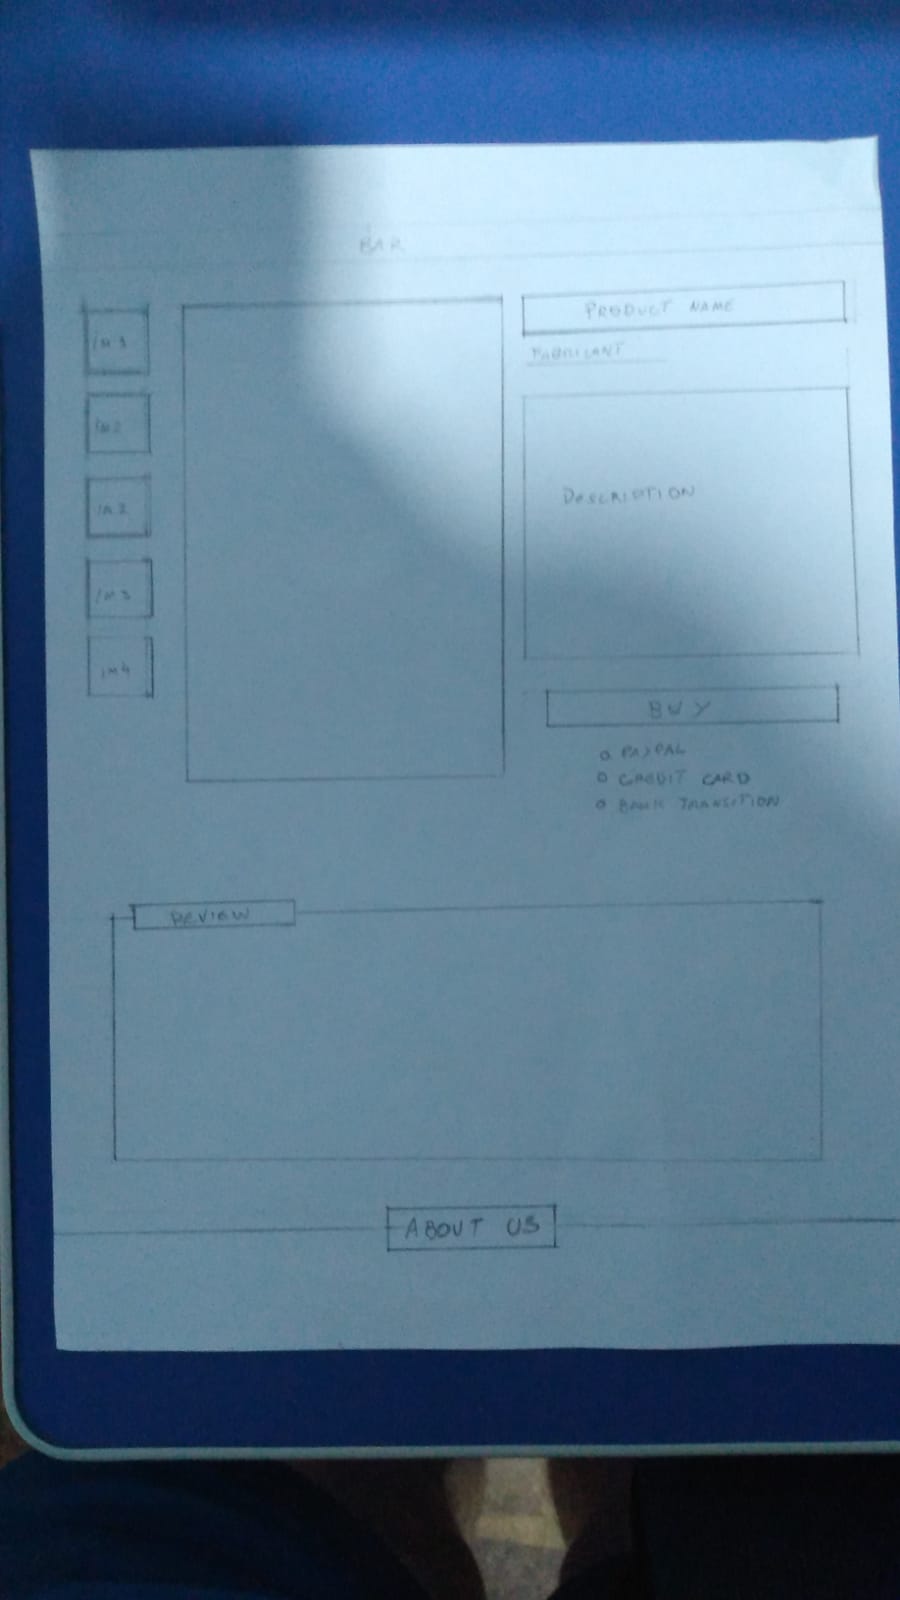 BAR
IM 1
IM 2
IM 2
IM 3
IM 4
PRODUCT NAME
FABRICANT
DESCRIPTION
BUY
PAYPAL
CREDIT CARD
BANK TRANSITION
REVIEW
ABOUT US